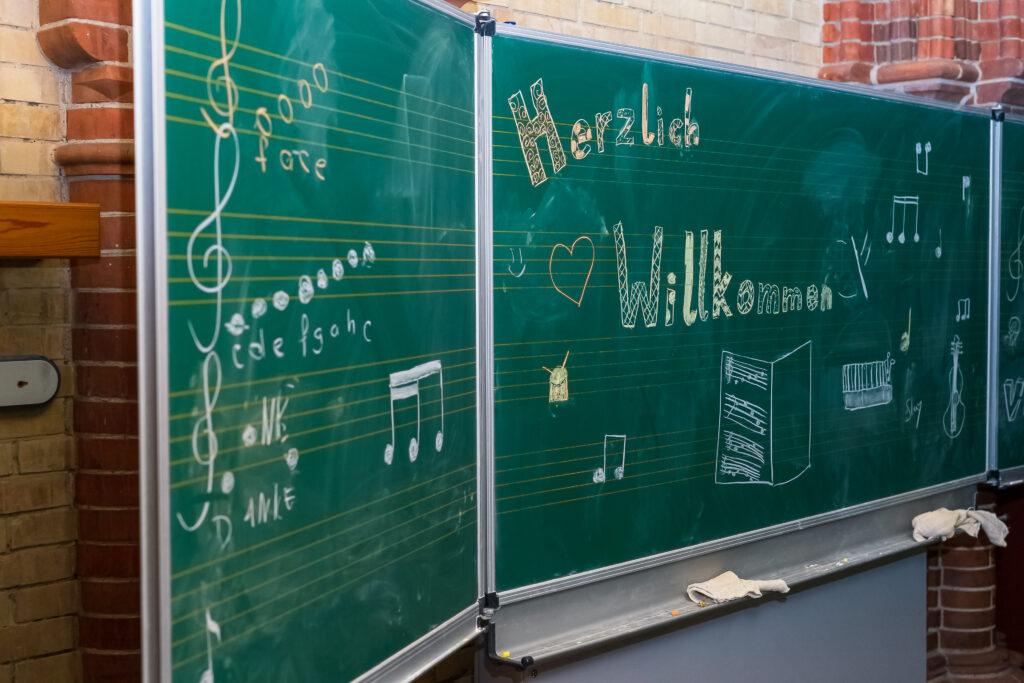 face
cdefgahc
DANKE
Herzlich
Willkommen